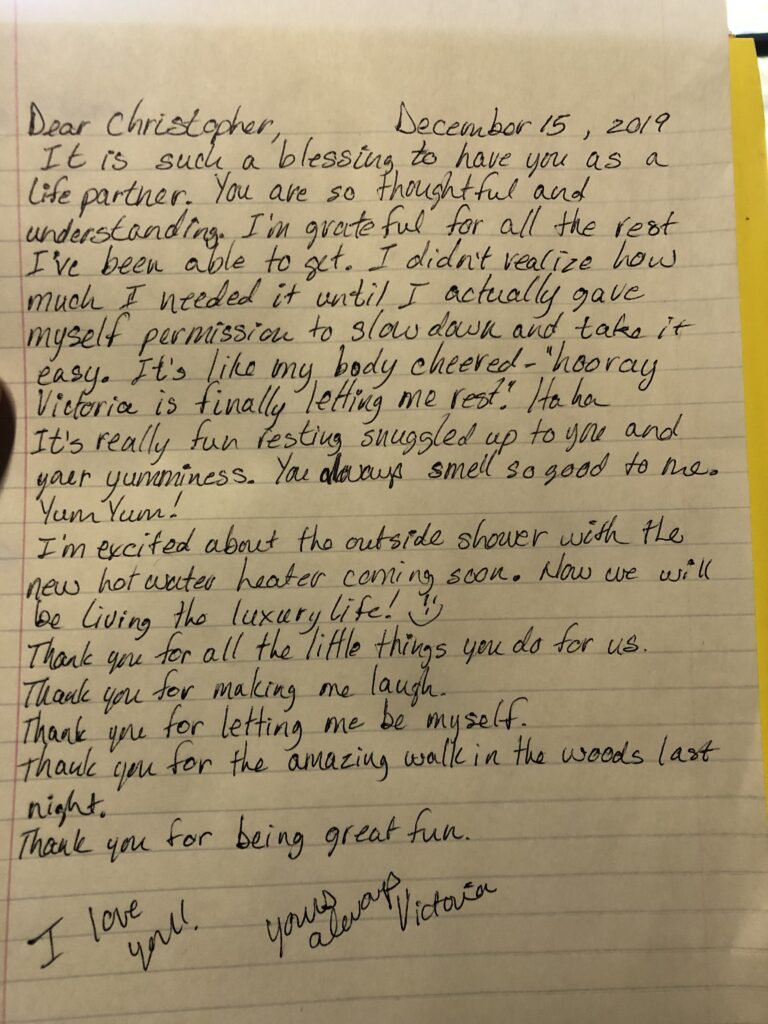 Dear Christopher, December 15, 2019
It is such a blessing to have you as a
life partner. You are so thoughtful and
understanding. I'm grateful for all the rest
I've been able to get. I didn't realize how
much I needed it until I actually gave
myself permission to slow down and take it
easy. It's like my body cheered - "hooray
Victoria is finally letting me rest". Ha ha
It's really fun resting snuggled up to you and
your yumminess. You always smell so good to me.
Yum Yum!
I'm excited about the outside shower with the
new hot water heater coming soon. Now we will
be living the luxury life!
Thank you for all the little things you do for us.
Thank you for making me laugh.
Thank you for letting me be myself.
Thank you for the amazing walk in the woods last
night.
Thank you for being great fun.
I love
you!!
yours
always
Victoria